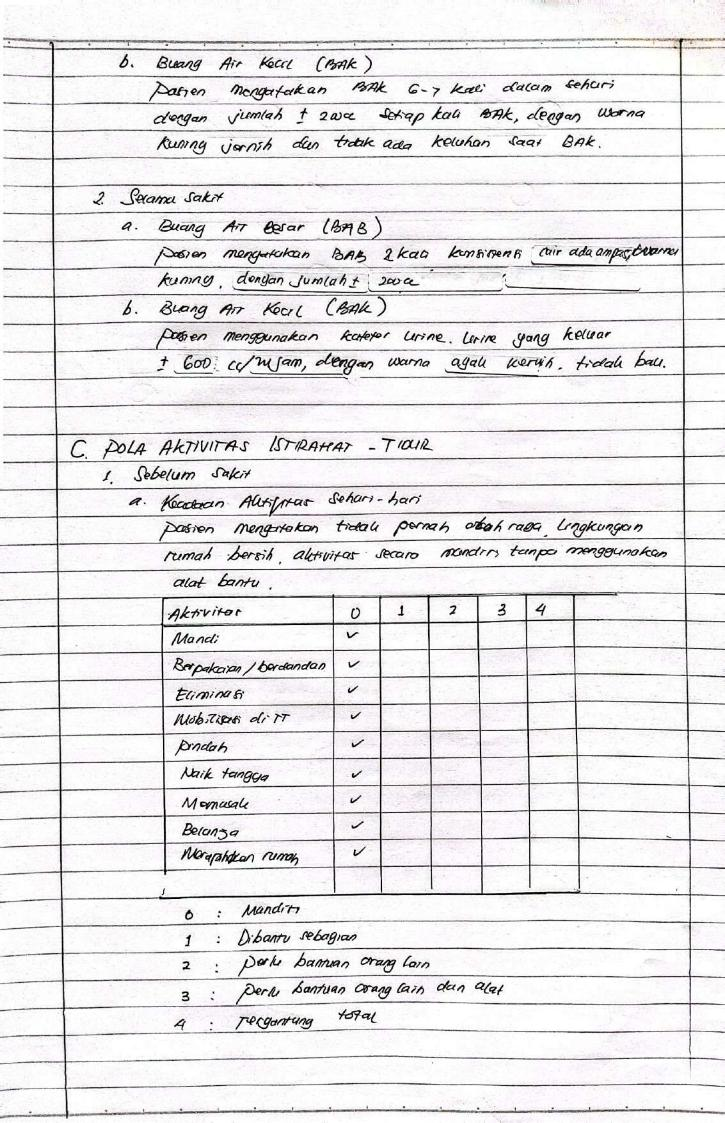 b. Buang Air Kecil (BAK)
Pasien mengatakan BAK 6-7 kali dalam sehari
dengan jumlah ± 200cc setiap kali BAK, dengan warna
kuning jernih dan tidak ada keluhan saat BAK.
2. Selama sakit
a. Buang Air Besar (BAB)
Pasien mengatakan BAB 2 kali konsistensi cair ada ampas, warna
kuning, dengan jumlah ± 200cc
b. Buang Air Kecil (BAK)
Pasien menggunakan kateter urine. Urine yang keluar
± 600 cc/ jam, dengan warna agak keruh, tidak bau.
C. POLA AKTIVITAS ISTIRAHAT - TIDUR
1. Sebelum sakit
a. Keadaan Aktifitas Sehari-hari
Pasien mengatakan tidak pernah olah raga, lingkungan
rumah bersih, aktivitas secara mandiri tanpa menggunakan
alat bantu.
Aktivitas 0 1 2 3 4
Mandi ✓
Berpakaian / berdandan ✓
Eliminasi ✓
Mobilisasi di TT ✓
Pindah ✓
Naik tangga ✓
Memasak ✓
Belanja ✓
Merapihkan rumah ✓
0 : Mandiri
1 : Dibantu sebagian
2 : Perlu bantuan orang lain
3 : Perlu bantuan orang lain dan alat
4 : Tergantung total